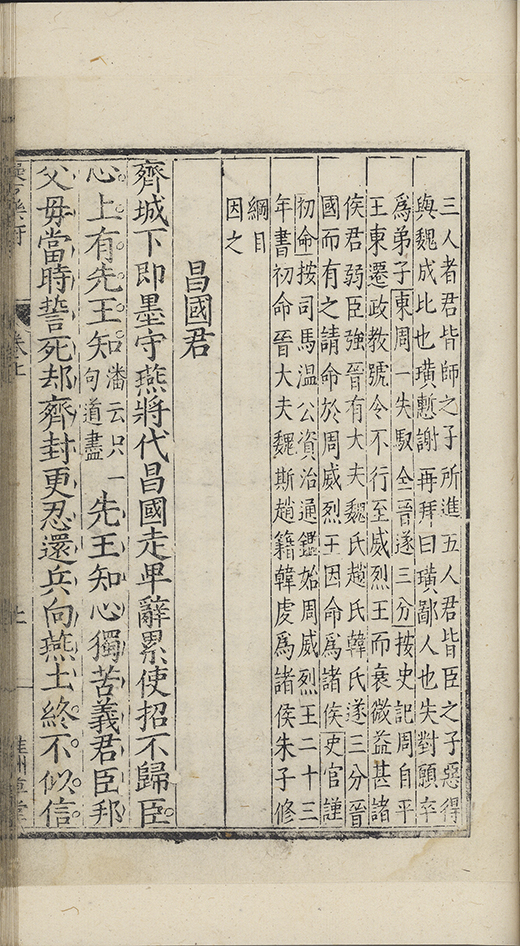 三人者君皆師之子所進五人君皆臣之子惡得
與魏成比也璜慙謝再拜曰璜鄙人也失對願卒
爲弟子東周一失馭全晉遂三分按史記周自平
王東遷政教號令不行至威烈王而衰微益甚諸
侯君弱臣強晉有大夫魏氏趙氏韓氏遂三分晉
國而有之請命於周威烈王因命爲諸侯史官謹
初命按司馬温公資治通鑑始周威烈王二十三
年書初命晉大夫魏斯趙籍韓虔爲諸侯朱子修
綱目
因之
昌國君
齊城下即墨守燕將代昌國走卑辭累使招不歸臣
心上有先王知潘云只一句道盡先王知心獨苦義君臣邦
父毋當時誓死却齊封更忍還兵向燕土終不似信
卷上